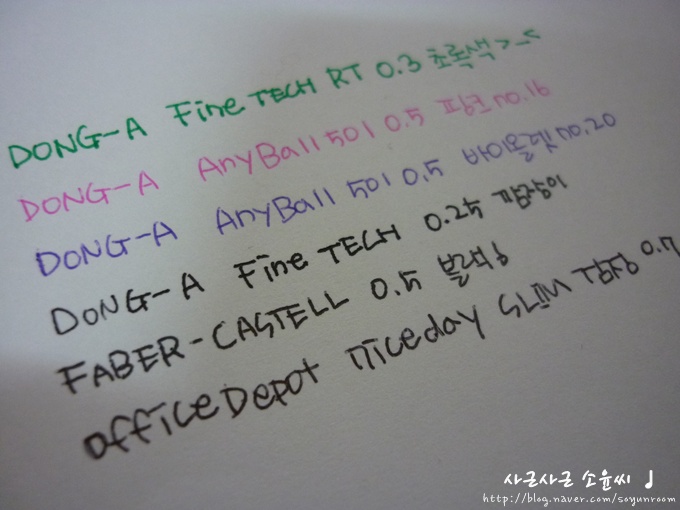 DONG-A Fine TECH RT 0.3 초록색>_<
DONG-A AnyBall 501 0.5 핑크 no.16
DONG-A AnyBall 501 0.5 바이올렛 no.20
DONG-A Fine TECH 0.25 깜장이
FABER-CASTELL 0.5 블랙
OfficeDepot niceday SLIM 검정 0.7
사근사근 소윤씨 ♩
http://blog.naver.com/soyunroom